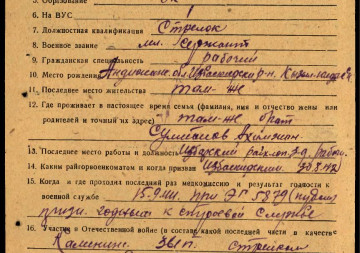 5. Образование
6. На ВУС 1
7. Должностная квалификация Стрелок
8. Военное звание мл. Сержант
9. Гражданская специальность рабочий
10. Место рождения Андижанская обл. Избаскентский р-н
11. Последнее место жительства там-же
12. Где проживает в настоящее время семья (фамилия, имя и отчество жены или
родителей и точный их адрес) там-же, брат
Султанов
13. Последнее место работы и должность рабоч.
14. Каким райгорвоенкоматом и когда призван Избаскентский
15. Когда и где проходил последний раз медкомиссию и результат годности к
военной службе при ЭГ 5879
призн. годным к строевой службе
16. Участие в Отечественной войне (в составе какой последней части в качестве
Калинин. 361 п. стрелком